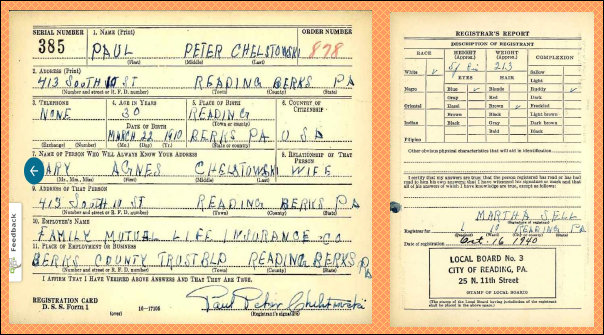 SERIAL NUMBER
1. NAME (Print)
ORDER NUMBER
385
PAUL PETER CHELSTOWSKI
878
(First) (Middle) (Last)
2. ADDRESS (Print)
413 SOUTH 10 ST READING BERKS PA
(Number and street or R. F. D. number) (Town) (County) (State)
3. TELEPHONE
4. AGE IN YEARS
5. PLACE OF BIRTH
6. COUNTRY OF CITIZENSHIP
NONE
30
READING
(Town or county)
DATE OF BIRTH
MARCH 22 1910
BERKS PA
U S A
(Exchange) (Number)
(Mo.) (Day) (Yr.)
(State or country)
7. NAME OF PERSON WHO WILL ALWAYS KNOW YOUR ADDRESS
8. RELATIONSHIP OF THAT PERSON
ARY AGNES CHELSTOWSKI WIFE
(Mr., Mrs., Miss) (First) (Middle) (Last)
9. ADDRESS OF THAT PERSON
413 SOUTH 10 ST READING BERKS PA
(Number and street or R. F. D. number) (Town) (County) (State)
10. EMPLOYER'S NAME
FAMILY MUTUAL LIFE INSURANCE CO
11. PLACE OF EMPLOYMENT OR BUSINESS
BERKS COUNTY TRUST BLD READING BERKS PA
(Number and street or R. F. D. number) (Town) (County) (State)
I AFFIRM THAT I HAVE VERIFIED ABOVE ANSWERS AND THAT THEY ARE TRUE.
REGISTRATION CARD
D. S. S. Form 1
(over)
Paul Peter Chelstowski
(Registrant's signature)
Feedback
REGISTRAR'S REPORT
DESCRIPTION OF REGISTRANT
RACE
HEIGHT (Approx.)
WEIGHT (Approx.)
COMPLEXION
White
213
Sallow
EYES
HAIR
Light
Negro Blue Blonde Ruddy
Gray Red Dark
Oriental Hazel Brown Freckled
Brown Black Light brown
Indian Black Gray Dark brown
Bald Black
Filipino
Other obvious physical characteristics that will aid in identification
I certify that my answers are true; that the person registered has read or has had read to him his own answers; that I have witnessed his signature or mark and that all of his answers of which I have knowledge are true, except as follows:
MARTHA SELL
(Signature of registrar)
Registrar for
READING PA
Date of registration Oct. 16 1940
LOCAL BOARD No. 3
CITY OF READING, PA.
25 N. 11th Street
(STAMP OF LOCAL BOARD)
(The stamp of the Local Board having jurisdiction of the registrant shall be placed in the above space.)